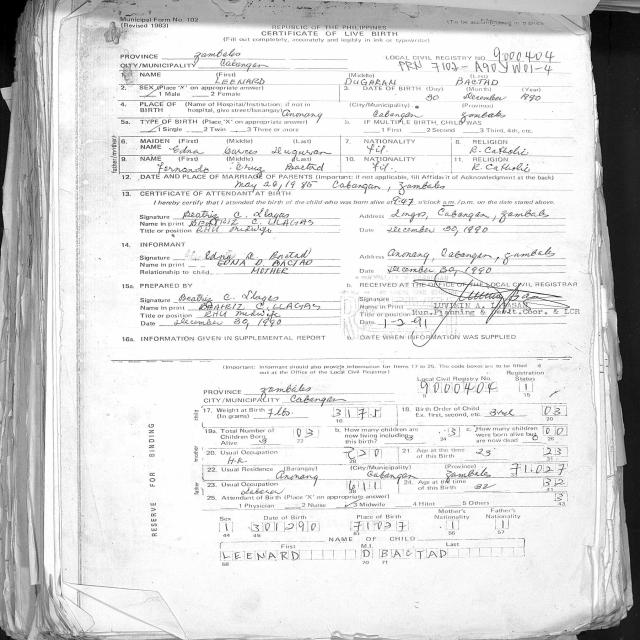 Municipal Form No. 102
(Revised 1983)
REPUBLIC OF THE PHILIPPINES
CERTIFICATE OF LIVE BIRTH
(Fill out completely, accurately and legibly in ink or typewriter)
PROVINCE Zambales LOCAL CIVIL REGISTRY NO 9000404
CITY/MUNICIPALITY Cabangan
1. NAME (First) (Middle) (Last)
LEENARD DUGARAN BACTAD
2. SEX (Place 'X' on appropriate answer) 3. DATE OF BIRTH (Day) (Month) (Year)
1 Male 2 Female 30 December 1990
4. PLACE OF BIRTH (Name of Hospital/Institution; if not in hospital, give street/barangay) (City/Municipality) (Province)
Anonang Cabangan Zambales
5a. TYPE OF BIRTH (Place 'X' on appropriate answer) b. IF MULTIPLE BIRTH, CHILD WAS
1 Single 2 Twin 3 Three or more 1 First 2 Second 3 Third, 4th, etc.
6. MAIDEN NAME (First) (Middle) (Last) 7. NATIONALITY 8. RELIGION
Edna Dugaran Fil. R. Catholic
9. NAME (First) (Middle) (Last) 10. NATIONALITY 11. RELIGION
Fernando Cruz Bactad Fil. R. Catholic
12. DATE AND PLACE OF MARRIAGE OF PARENTS (Important: if not applicable, fill Affidavit of Acknowledgment at the back)
May 26, 1985 Cabangan, Zambales
13. CERTIFICATE OF ATTENDANT AT BIRTH
I hereby certify that I attended the birth of the child who was born alive at 9:47 o'clock a.m./p.m. on the date stated above.
Signature Beatriz C. Llagas Address Cabangan, Zambales
Name in print BEATRIZ C. LLAGAS
Title or position RHU Midwife Date December 30, 1990
14. INFORMANT
Signature Edna D. Bactad Address Anonang, Cabangan, Zambales
Name in print EDNA D. BACTAD
Relationship to child MOTHER Date December 30, 1990
15a. PREPARED BY b. RECEIVED AT THE OFFICE OF THE LOCAL CIVIL REGISTRAR
Signature Beatriz C. Llagas Signature
Name in print BEATRIZ C. LLAGAS Name in Print
Title or position RHU Midwife Title or position
Date December 30, 1990 Date 1-2-91
16a. INFORMATION GIVEN IN SUPPLEMENTAL REPORT b. DATE WHEN INFORMATION WAS SUPPLIED
(Important: Informant should also provide information for items 17 to 25. The code boxes are to be filled out at the Office of the Local Civil Registrar)
PROVINCE Zambales Local Civil Registry No. Registration Status
CITY/MUNICIPALITY Cabangan 9000404 1
17. Weight at Birth (In grams) 7 lbs. 3175 18. Birth Order of Child Ex. first, second, etc. 3rd 03
19a. Total Number of Children Born Alive 3 03 b. How many children are now living including this birth? 3 c. How many children were born alive but are now dead? 00
20. Usual Occupation H.K. 220 21. Age at the time of this Birth 23 23
22. Usual Residence (Barangay) (City/Municipality) (Province)
Anonang Cabangan Zambales 71027
23. Usual Occupation laborer 611 24. Age at the time of this Birth 32 32
25. Attendant at Birth (Place 'X' on appropriate answer)
1 Physician 2 Nurse 3 Midwife 4 Hilot 5 Others 3
Sex Date of Birth Place of Birth Mother's Nationality Father's Nationality
1 301290 71027 1 1
NAME OF CHILD
First M.I. Last
LEENARD D BACTAD
RESERVE FOR BINDING